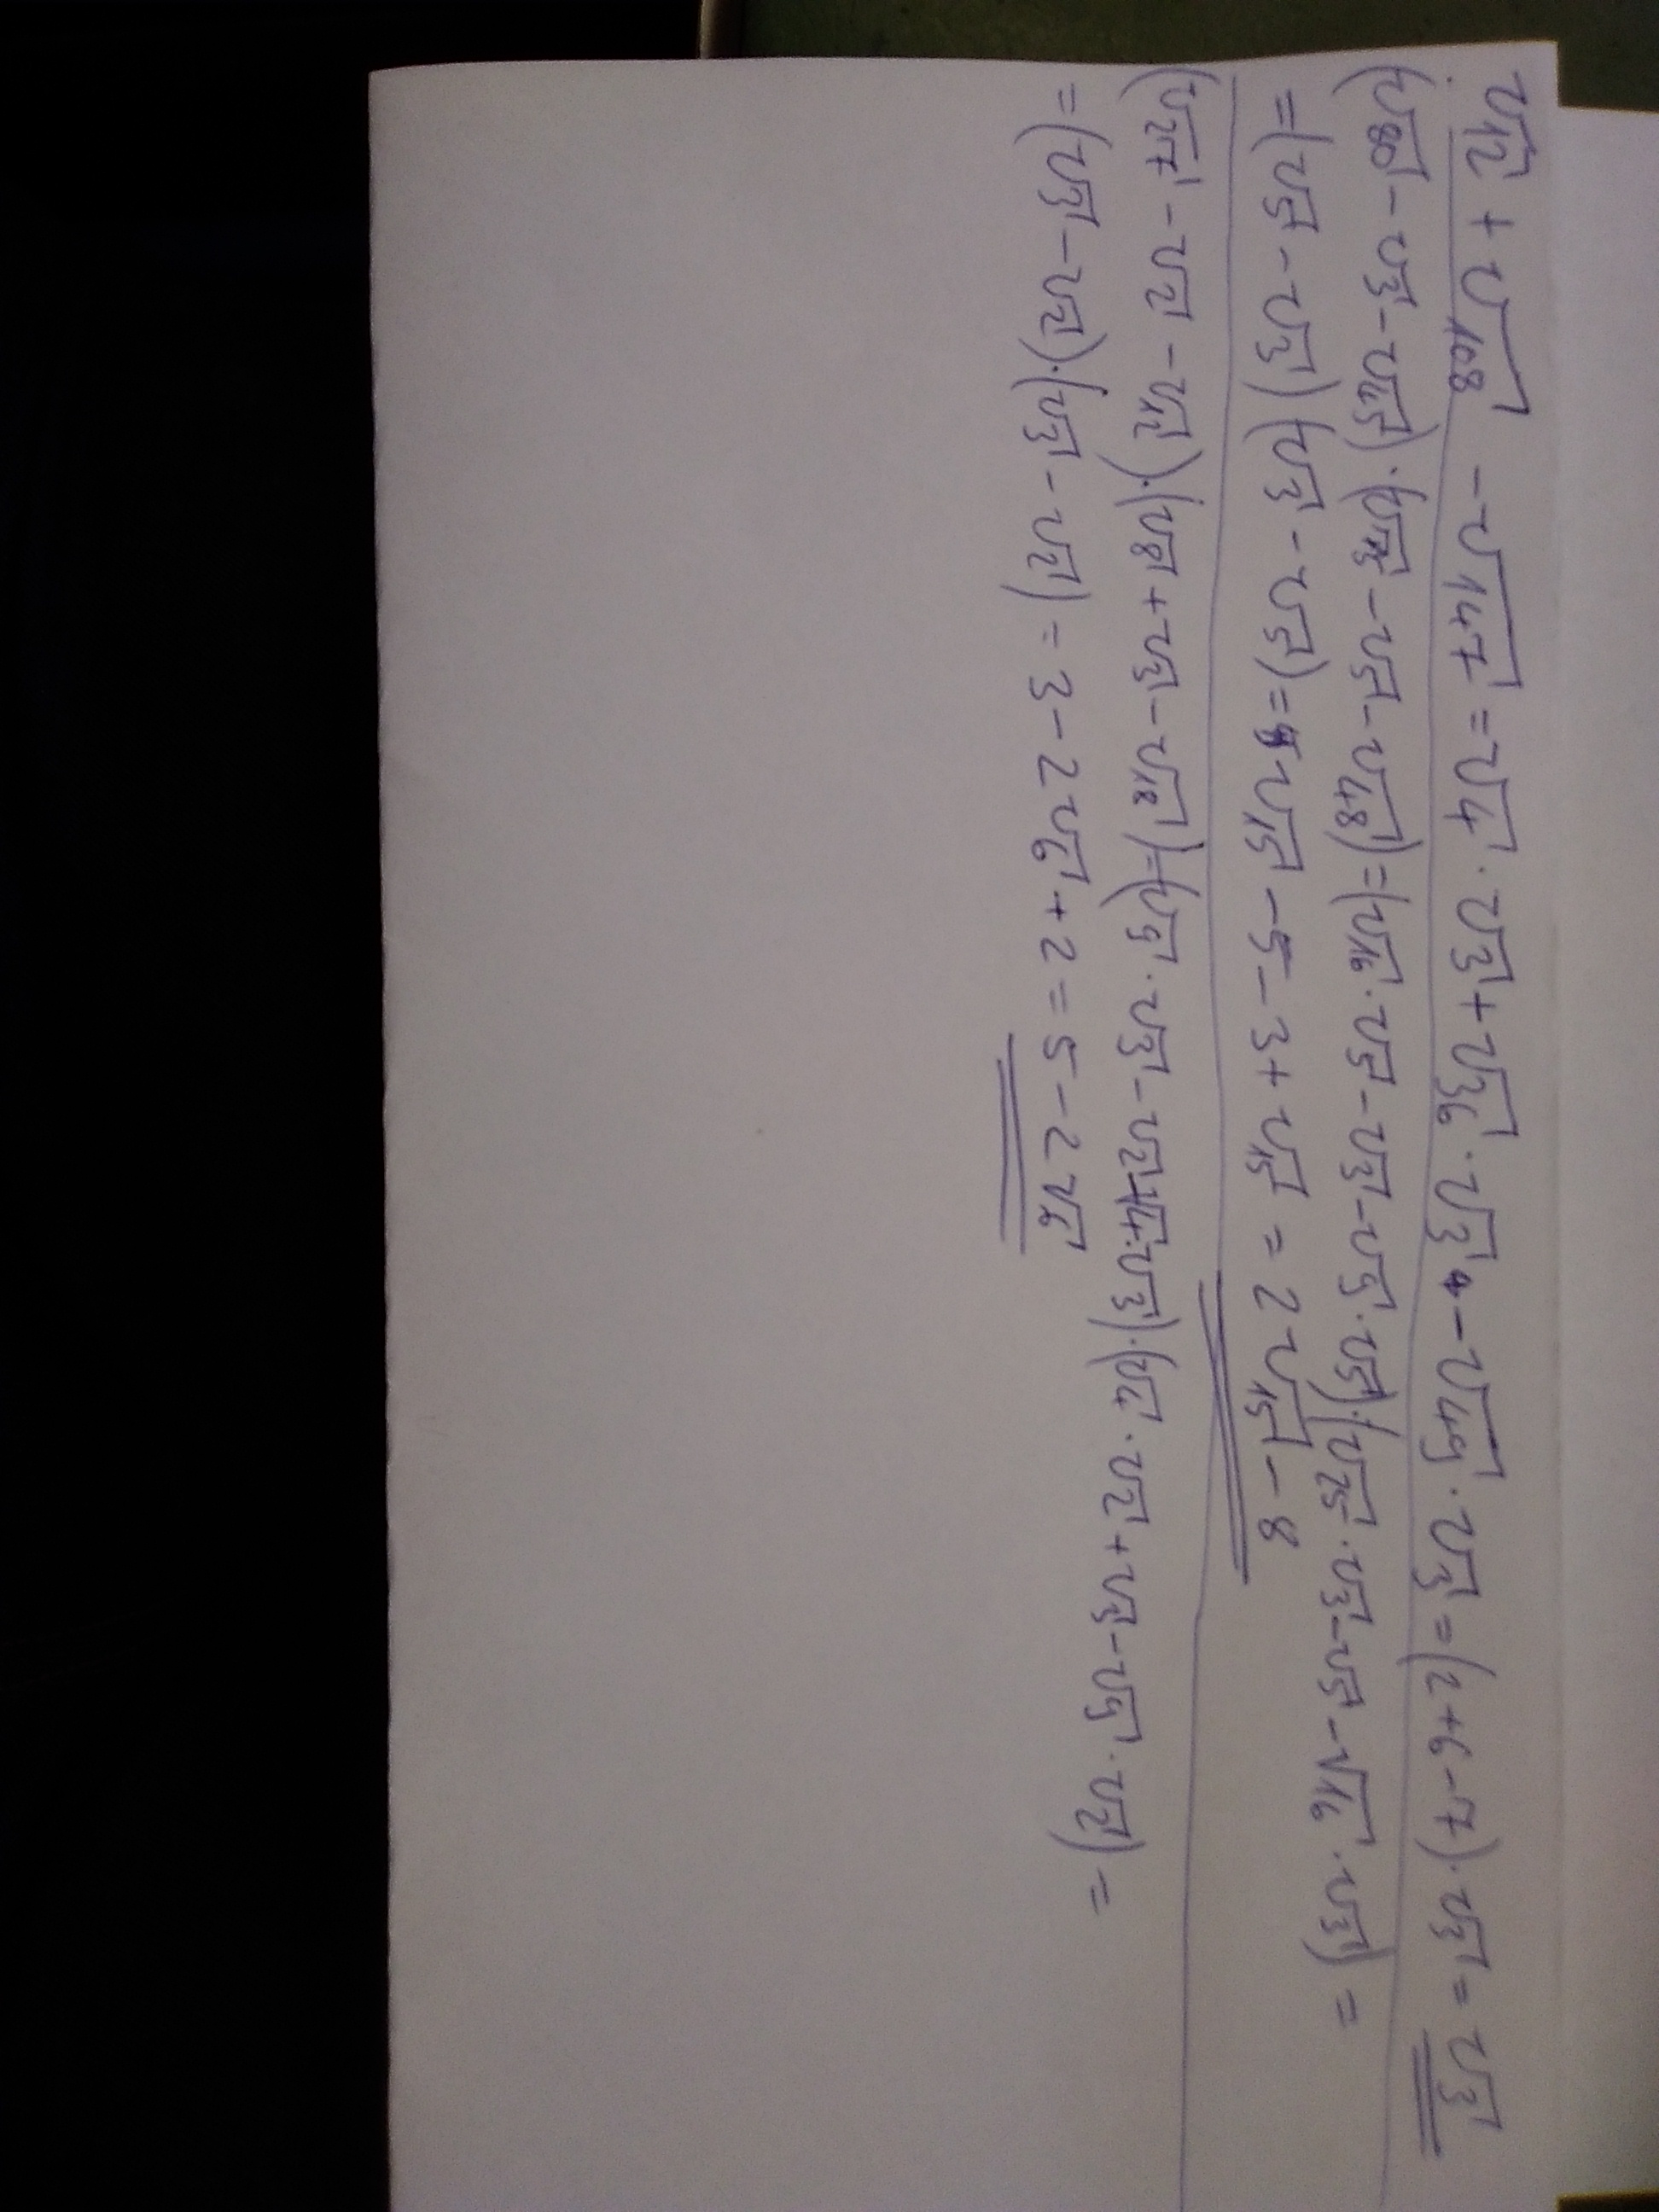 √12 + √108 - √147 = √4 · √3 + √36 · √3 - √49 · √3 = (2+6-7) · √3 = √3
(√80 - √3 - √45) · (√75 - √5 - √48) = (√16 · √5 - √3 - √9 · √5) · (√25 · √3 - √5 - √16 · √3) =
= (√5 - √3) (√3 - √5) = √15 - 5 - 3 + √15 = 2√15 - 8
(√27 - √2 - √12) · (√8 + √3 - √18) = (√9 · √3 - √2 - √4 · √3) · (√4 · √2 + √3 - √9 · √2) =
= (√3 - √2) · (√3 - √2) = 3 - 2√6 + 2 = 5 - 2√6